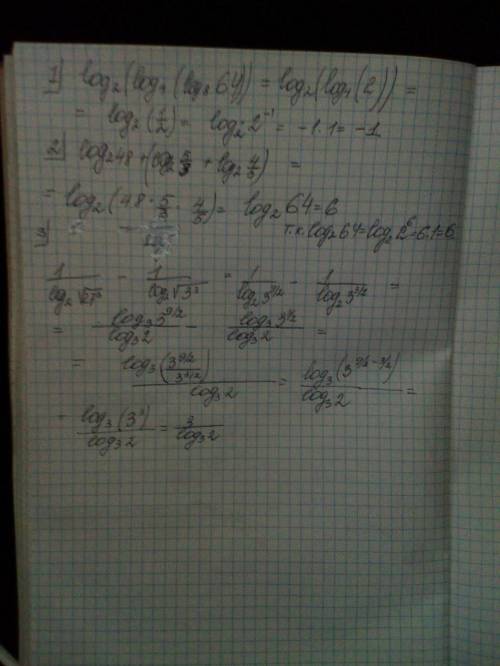 1) log₂(log₄(log₈ 64)) = log₂(log₄(2)) =
= log₂(1/2) = log₂ 2⁻¹ = -1·1 = -1
2) log₂48 + (log₂ 5/3 + log₂ 4/5) =
= log₂(48 · 5/3 · 4/5) = log₂ 64 = 6
т.к. log₂64 = log₂ 2⁶ = 6·1 = 6
3)
1/log₂√27³ - 1/log₂√3³ = 1/log₂3^(9/2) - 1/log₂3^(3/2) =
= log₃3^(9/2)/log₃2 - log₃3^(3/2)/log₃2 =
= log₃(3^(9/2)/3^(3/2))/log₃2 = log₃(3^(9/2 - 3/2))/log₃2 =
log₃(3³)/log₃2 = 3/log₃2